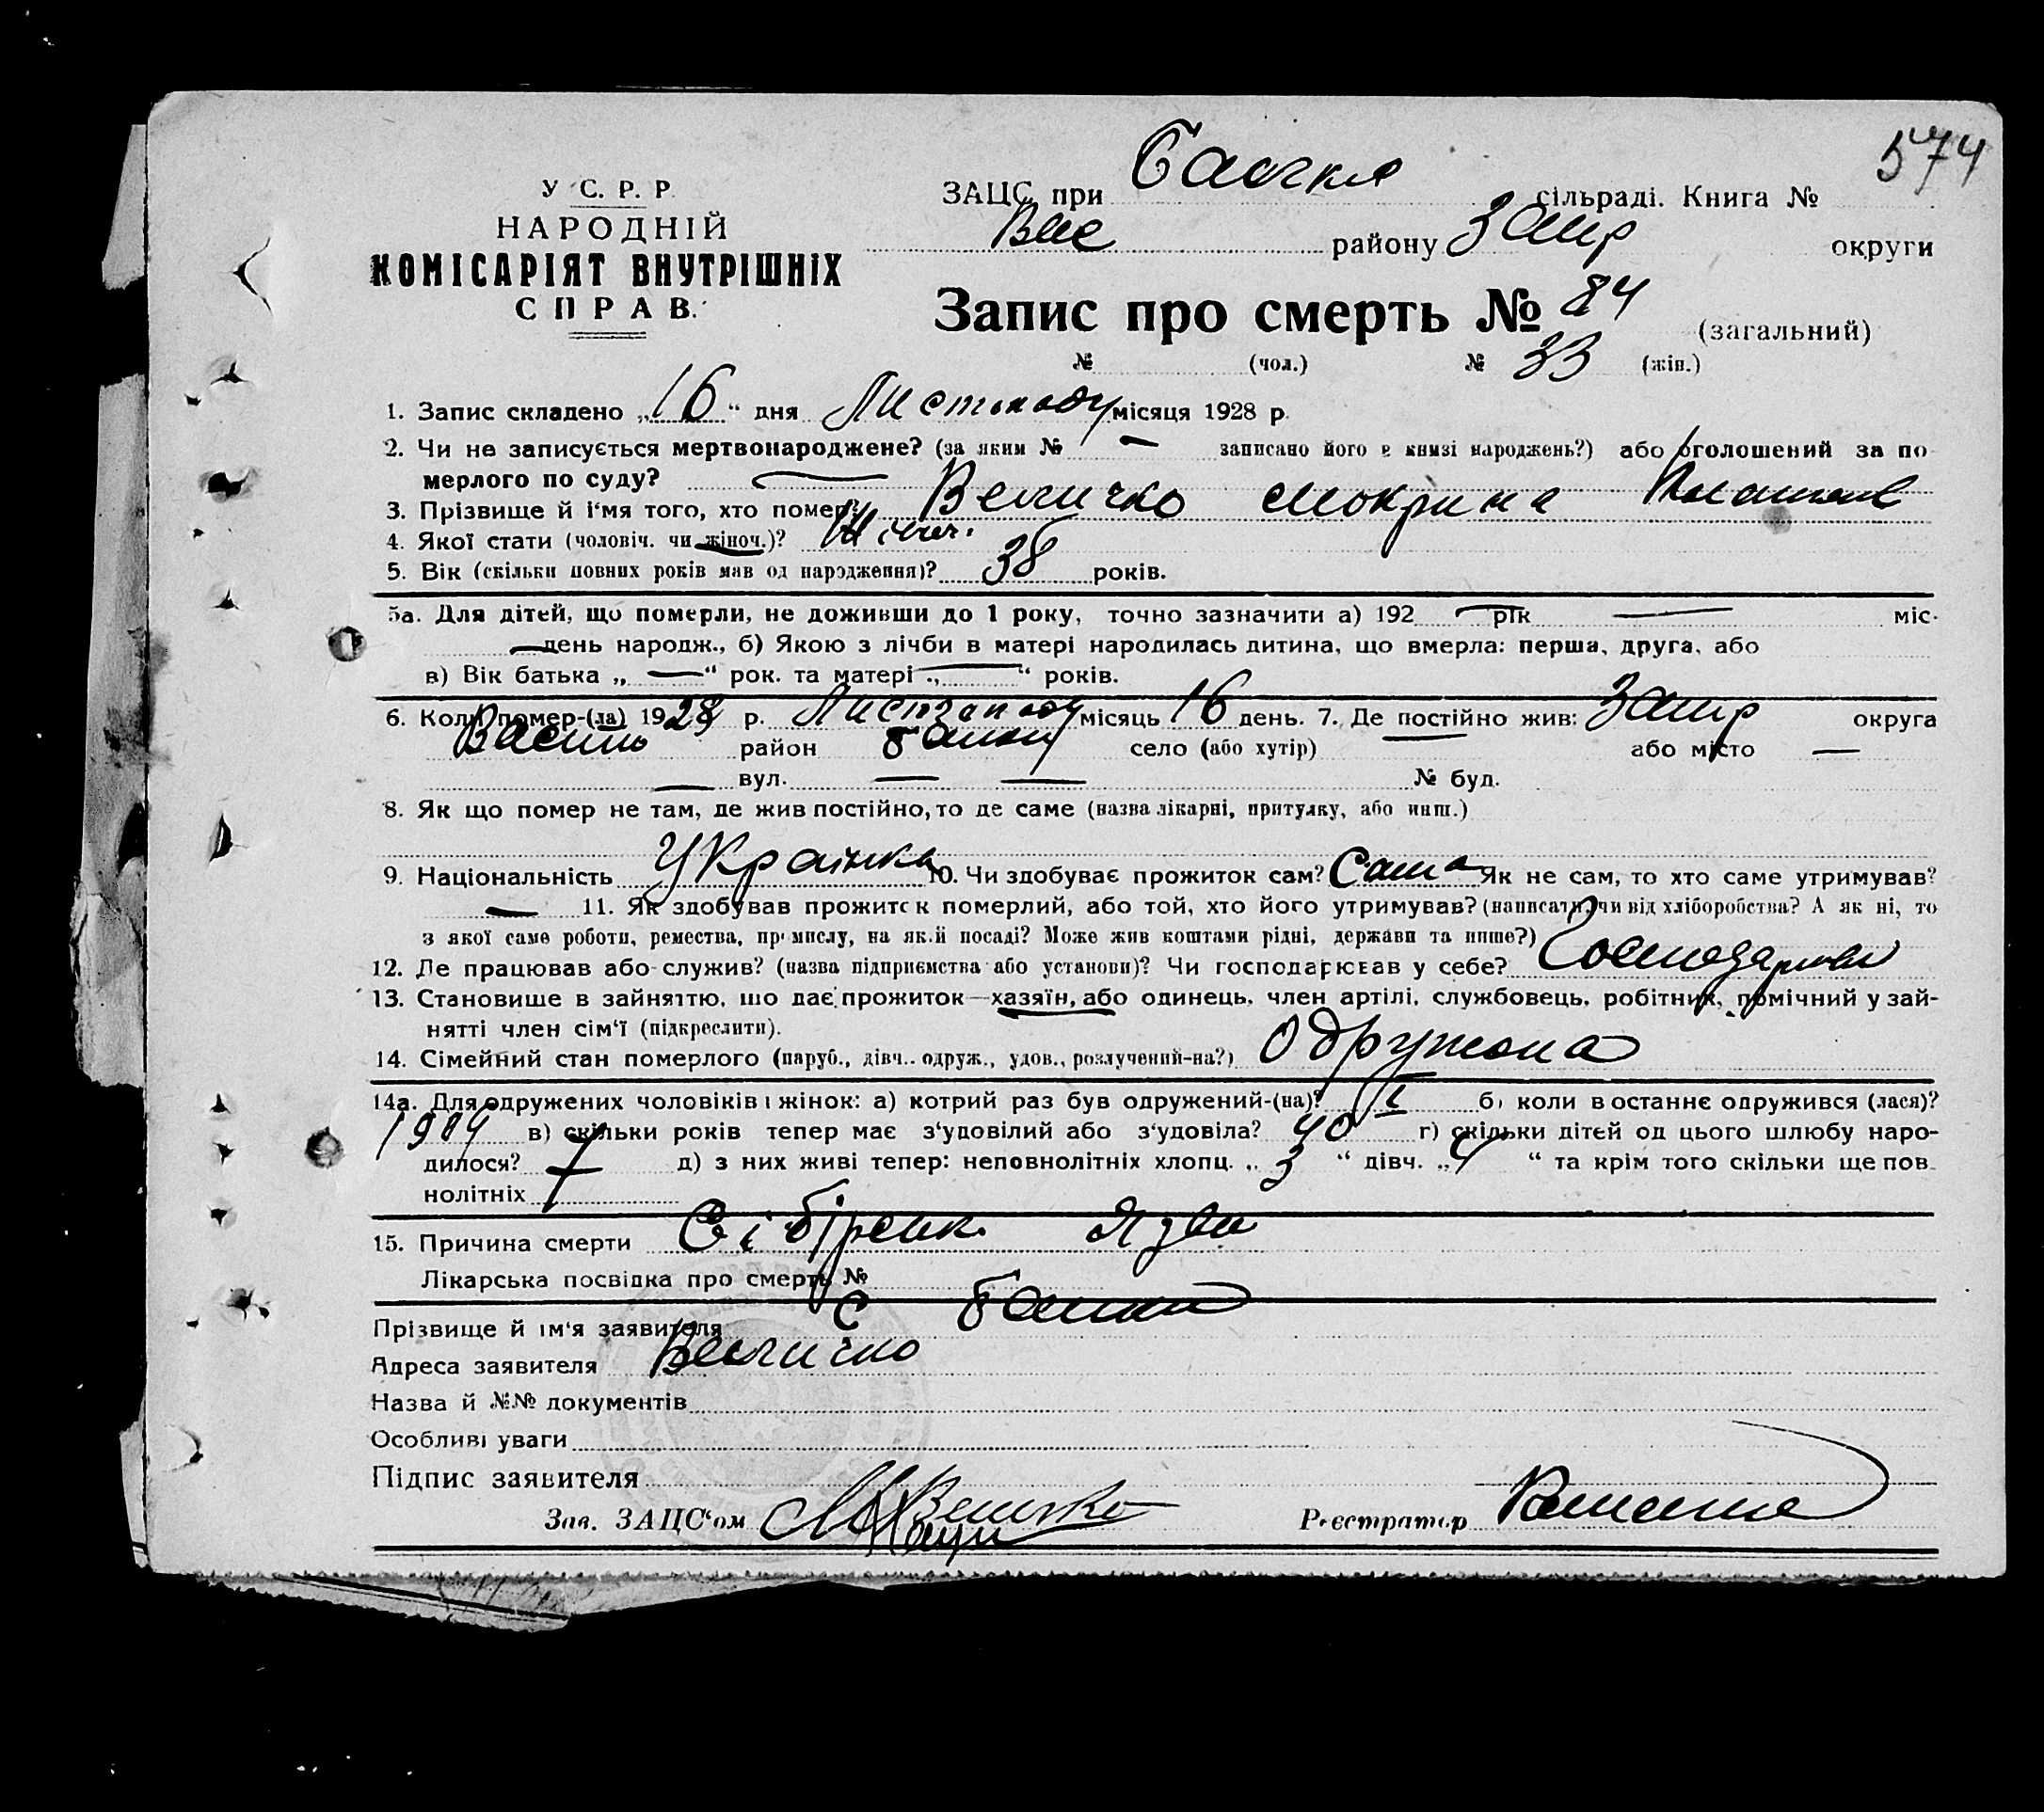 574
У С. Р. Р.
НАРОДНІЙ
КОМІСАРІЯТ ВНУТРІШНІХ
СПРАВ.
ЗАЦС при сільраді. Книга №
Вас району Запр округи
Запис про смерть № 84 (загальний)
№ (чол.) № 33 (жін.)
1. Запис складено „16“ дня Листопаду місяця 1928 р.
2. Чи не записується мертвонароджене? (за яким № — записано його в книзі народжень?) або оголошений за по
мерлого по суду? —
3. Прізвище й і'мя того, хто помер? Величко Мокрина
4. Якої стати (чоловіч. чи жіноч.)? Жіноч.
5. Вік (скільки повних років мав од народження)? 38 років.
5а. Для дітей, що померли, не доживши до 1 року, точно зазначити а) 192 — рік — міс.
— день народж., б) Якою з лічби в матері народилась дитина, що вмерла: перша, друга, або
в) Вік батька „—“ рок. та матері „—“ років.
6. Коли помер-(ла) 1928 р. Листопаду місяць 16 день. 7. Де постійно жив: Запр округа
Василь район Балки село (або хутір) — або місто —
— вул. — — № буд.
8. Як що помер не там, де жив постійно, то де саме (назва лікарні, притулку, або инш.)
9. Національність Українка 10. Чи здобуває прожиток сам? Сама Як не сам, то хто саме утримував?
— 11. Як здобував прожиток померлий, або той, хто його утримував? (написати, чи від хліборобства? А як ні, то
з якої саме роботи, ремества, промислу, на якій посаді? Може жив коштами рідні, держави та инше?)
12. Де працював або служив? (назва підприємства або установи)? Чи господарював у себе?
13. Становище в зайняттю, що дає прожиток—хазяїн, або одинець, член артілі, службовець, робітник, помічний у зай-
нятті член сім'ї (підкреслити).
14. Сімейний стан померлого (паруб., дівч., одруж., удов., розлучений-на?) Одружона
14а. Для одружених чоловіків і жінок: а) котрий раз був одружений-(на)? I б) коли в останнє одружився (лася)?
1909 в) скільки років тепер має з'удовілий або з'удовіла? 40 г) скільки дітей од цього шлюбу наро-
дилося? 7 д) з них живі тепер: неповнолітніх хлопц. „3“ дівч. „4“ та крім того скільки ще пов-
нолітніх
15. Причина смерти Сібірськ. Язва
Лікарська посвідка про смерть №
Прізвище й ім'я заявителя с Балки
Адреса заявителя Величко
Назва й №№ документів
Особливі уваги
Підпис заявителя
Зав. ЗАЦС'ом Реєстратор